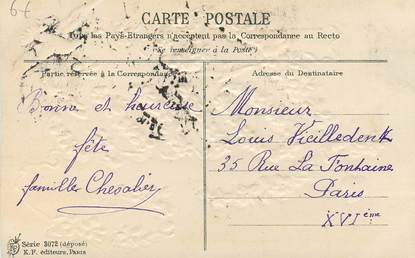 67
CARTE POSTALE
Tous les Pays Etrangers n'acceptent pas la Correspondance au Recto
(Se renseigner à la Poste)
Partie réservée à la Correspondance
Adresse du Destinataire
Bonne et heureuse
fête
famille Chevalier
Monsieur
Louis Vieilledent
35 Rue La Fontaine
Paris
XVIème
Série 3072 (déposé)
K.F. éditeurs, Paris